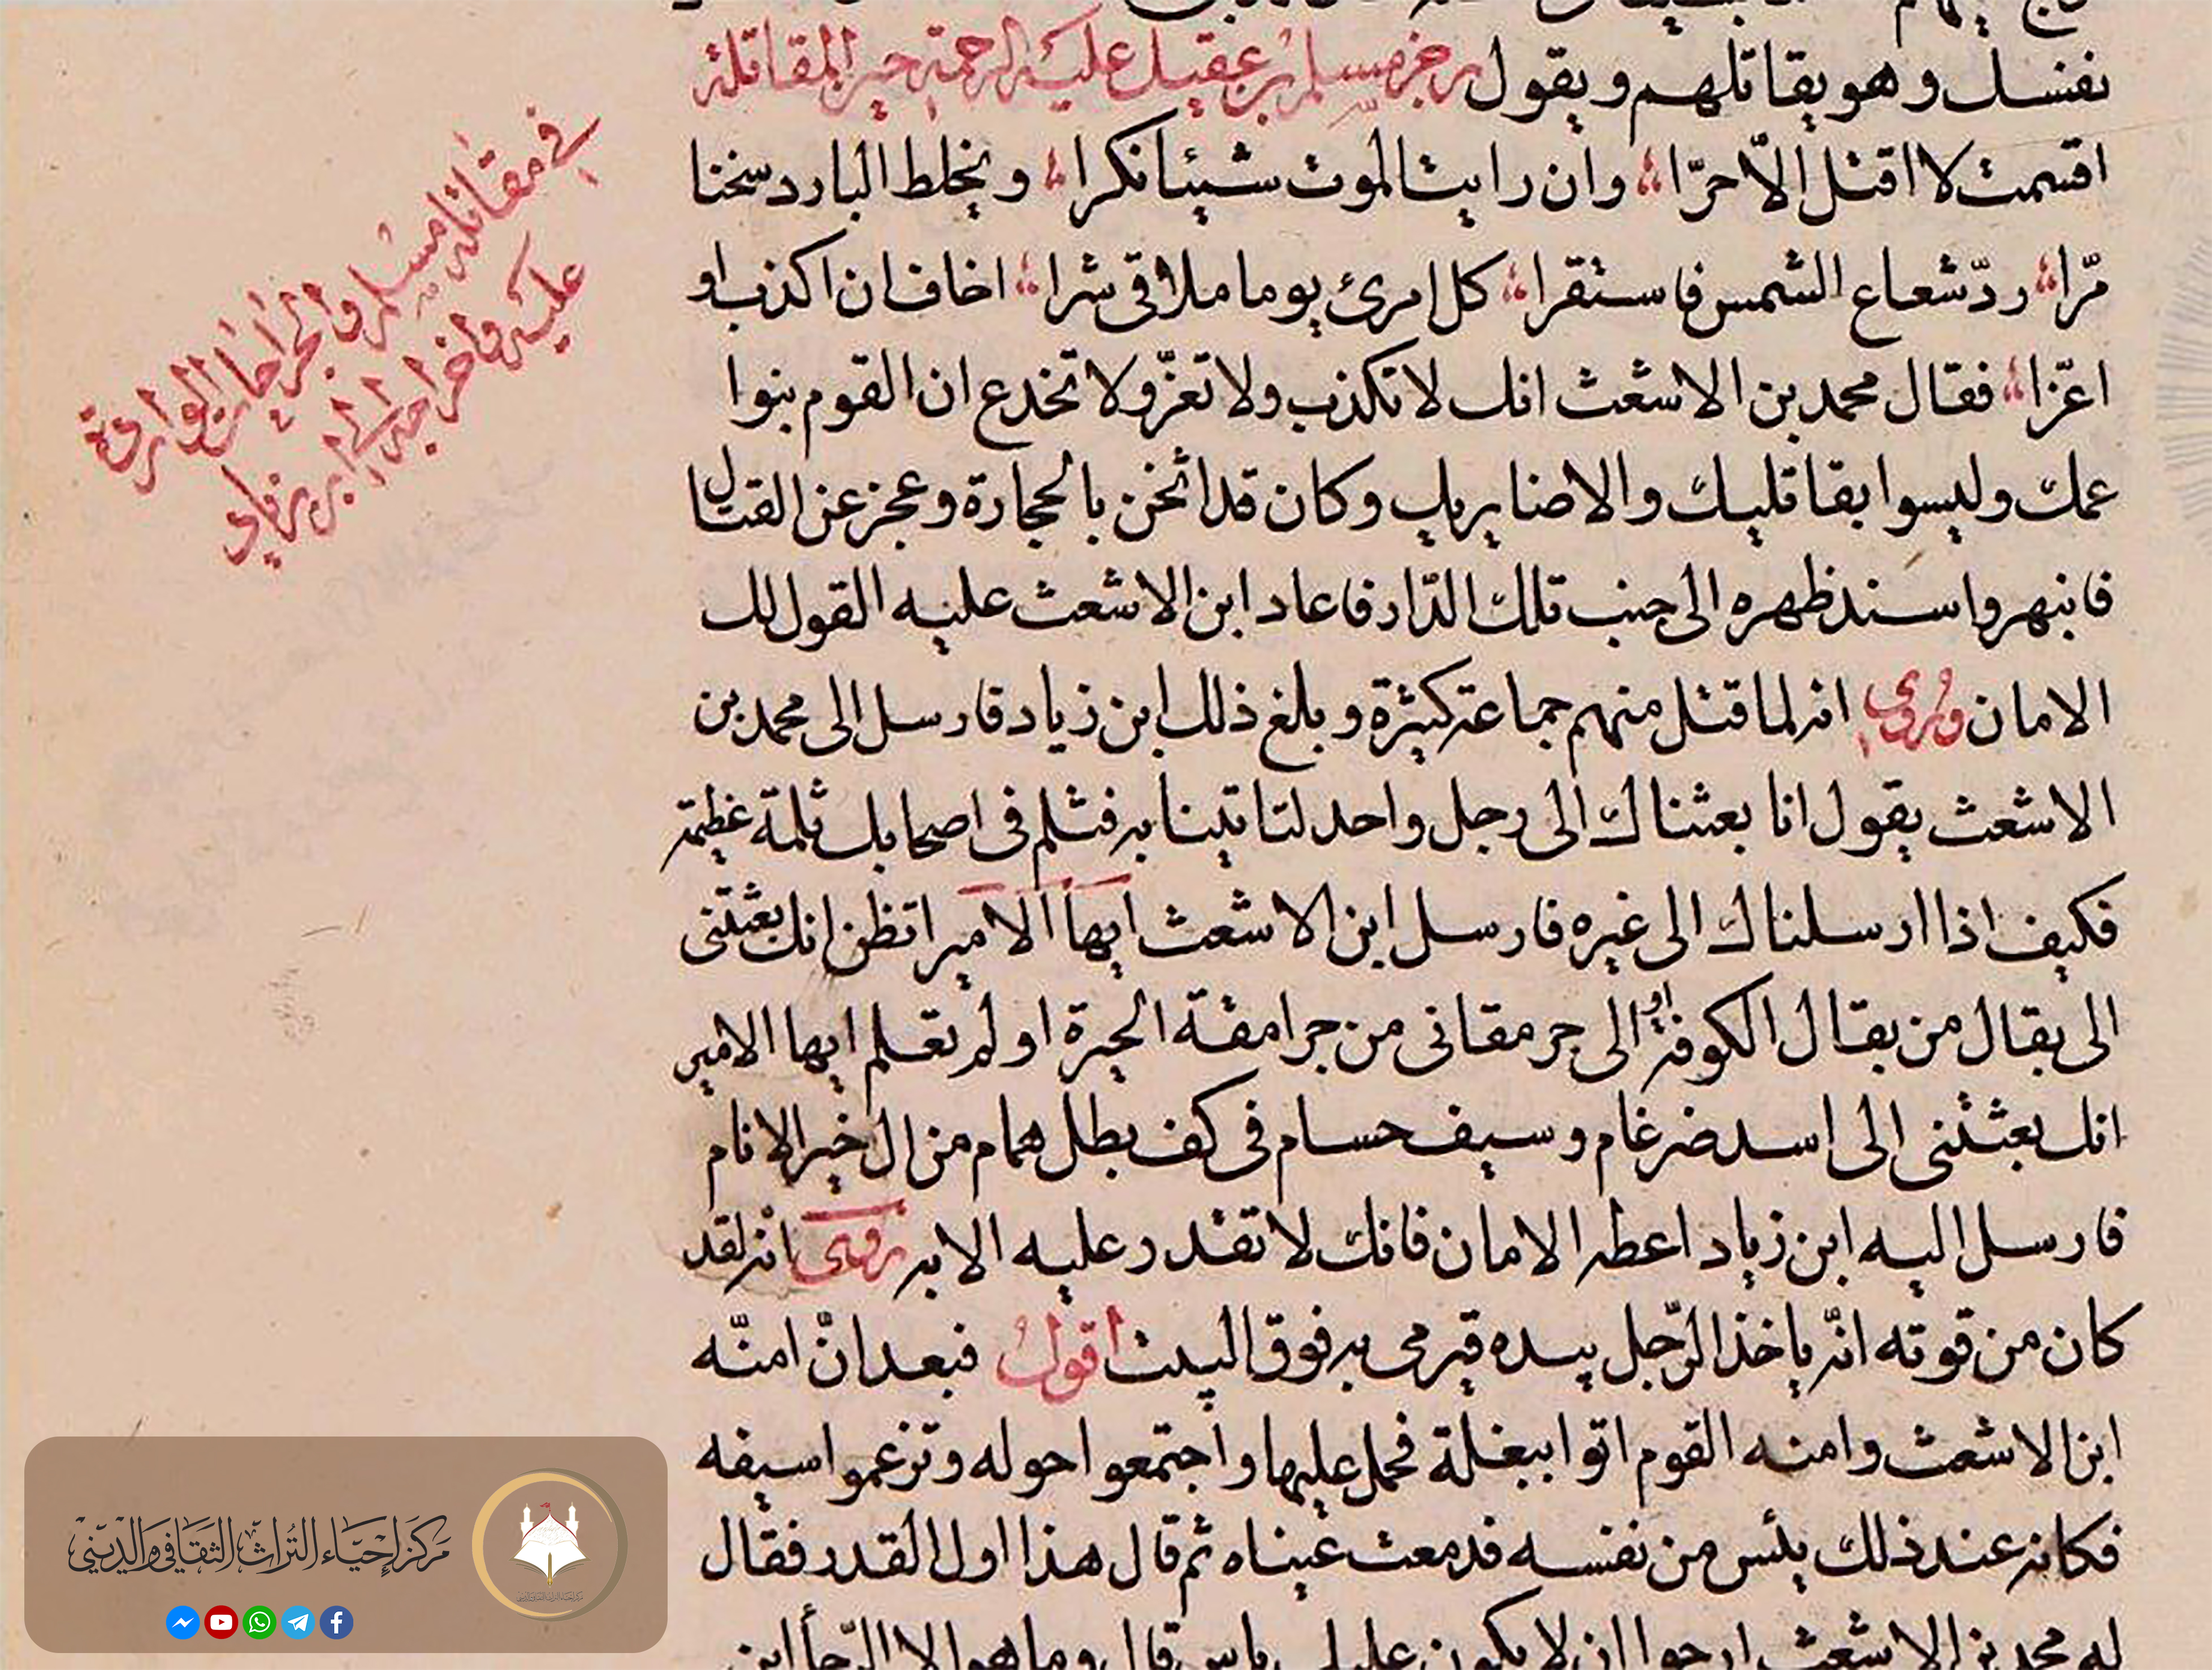 نفسك وهو يقاتلهم ويقول رجز مسلم بن عقيل عليه الرحمة حين المقاتلة
اقسمت لا اقتل الّا حرّا وان رايت الموت شيئا نكرا ويخلط البارد سخنا
مرّا ردّ شعاع الشمس فاستقرا كل امرئ يوما ملاقى شرا اخاف ان اكذب او
اغرّا فقال محمد بن الاشعث انك لا تكذب ولا تغرّ ولا تخدع ان القوم بنوا
عمك وليسوا بقاتليك والاضايريك وكان قد اثخن بالحجارة وعجز عن القتال
فانبهر واسند ظهره الى جنب تلك الدّار فاعاد ابن الاشعث عليه القول لك
الامان وروي انه لما قتل منهم جماعة كثيرة وبلغ ذلك ابن زياد فارسل الى محمد بن
الاشعث يقول انا بعثناك الى رجل واحد لتاتينا به فثلم فى اصحابك ثلمة عظيمة
فكيف اذا ارسلناك الى غيره فارسل ابن الاشعث ايها الامير اتظن انك بعثتنى
الى بقال من بقال الكوفة او الى جرمقانى من جرامقة الحيرة او لم تعلم ايها الامير
انك بعثتنى الى اسد ضرغام وسيف حسام فى كف بطل همام من ال خير الانام
فارسل اليه ابن زياد اعطه الامان فانك لا تقدر عليه الا به روى انه لقد
كان من قوته انّه ياخذ الرّجل بيده فيرمى به فوق البيت اقول فبعد انّ امنّه
ابن الاشعث وامنه القوم اتوا ببغلة فحمل عليها واجتمعوا حوله وتزعموا سيفه
فكانه عند ذلك يئس من نفسه فدمعت عيناه ثم قال هذا اول القدر فقال
له محمد بن الاشعث ارجوا ان لا يكون عليك باس قال وما هو الا الرّجا أين
في مقاتلة مسلم والجراحات الواردة
عليه واخراجه الى ابن زياد
مركز إحياء التراث الثقافي والديني